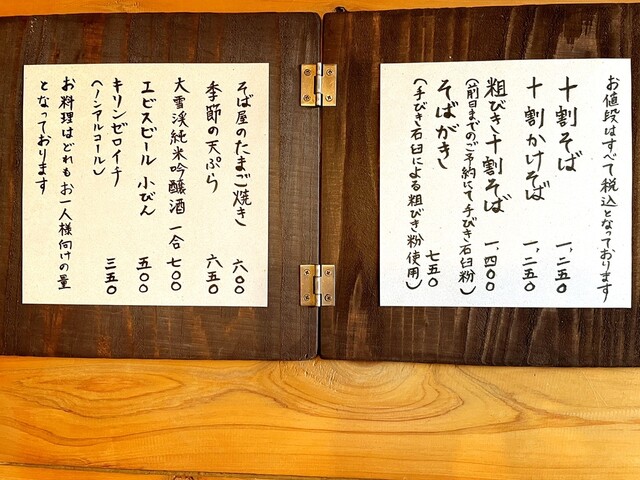 お値段はすべて税込となっております
十割そば 一、二五〇
十割かけそば 一、二五〇
粗びき十割そば 一、四〇〇
(前日までのご予約にて手びき石臼粉)
そばがき 七五〇
(手びき石臼による粗びき粉使用)
そば屋のたまご焼き 六〇〇
季節の天ぷら 六五〇
大雪渓純米吟醸酒 一合 七〇〇
エビスビール 小びん 五〇〇
キリンゼロイチ 三五〇
(ノンアルコール)
お料理はどれもお一人様向けの量
となっております